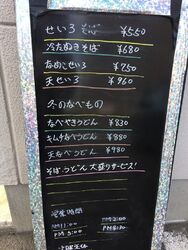 せいろそば ¥550
冷たぬきそば ¥680
なめこせいろ ¥750
天せいろ ¥960
冬のなべもの
なべやきうどん ¥830
キムチなべうどん ¥880
天なべうどん ¥980
そば・うどん 大盛りサービス!
営業時間